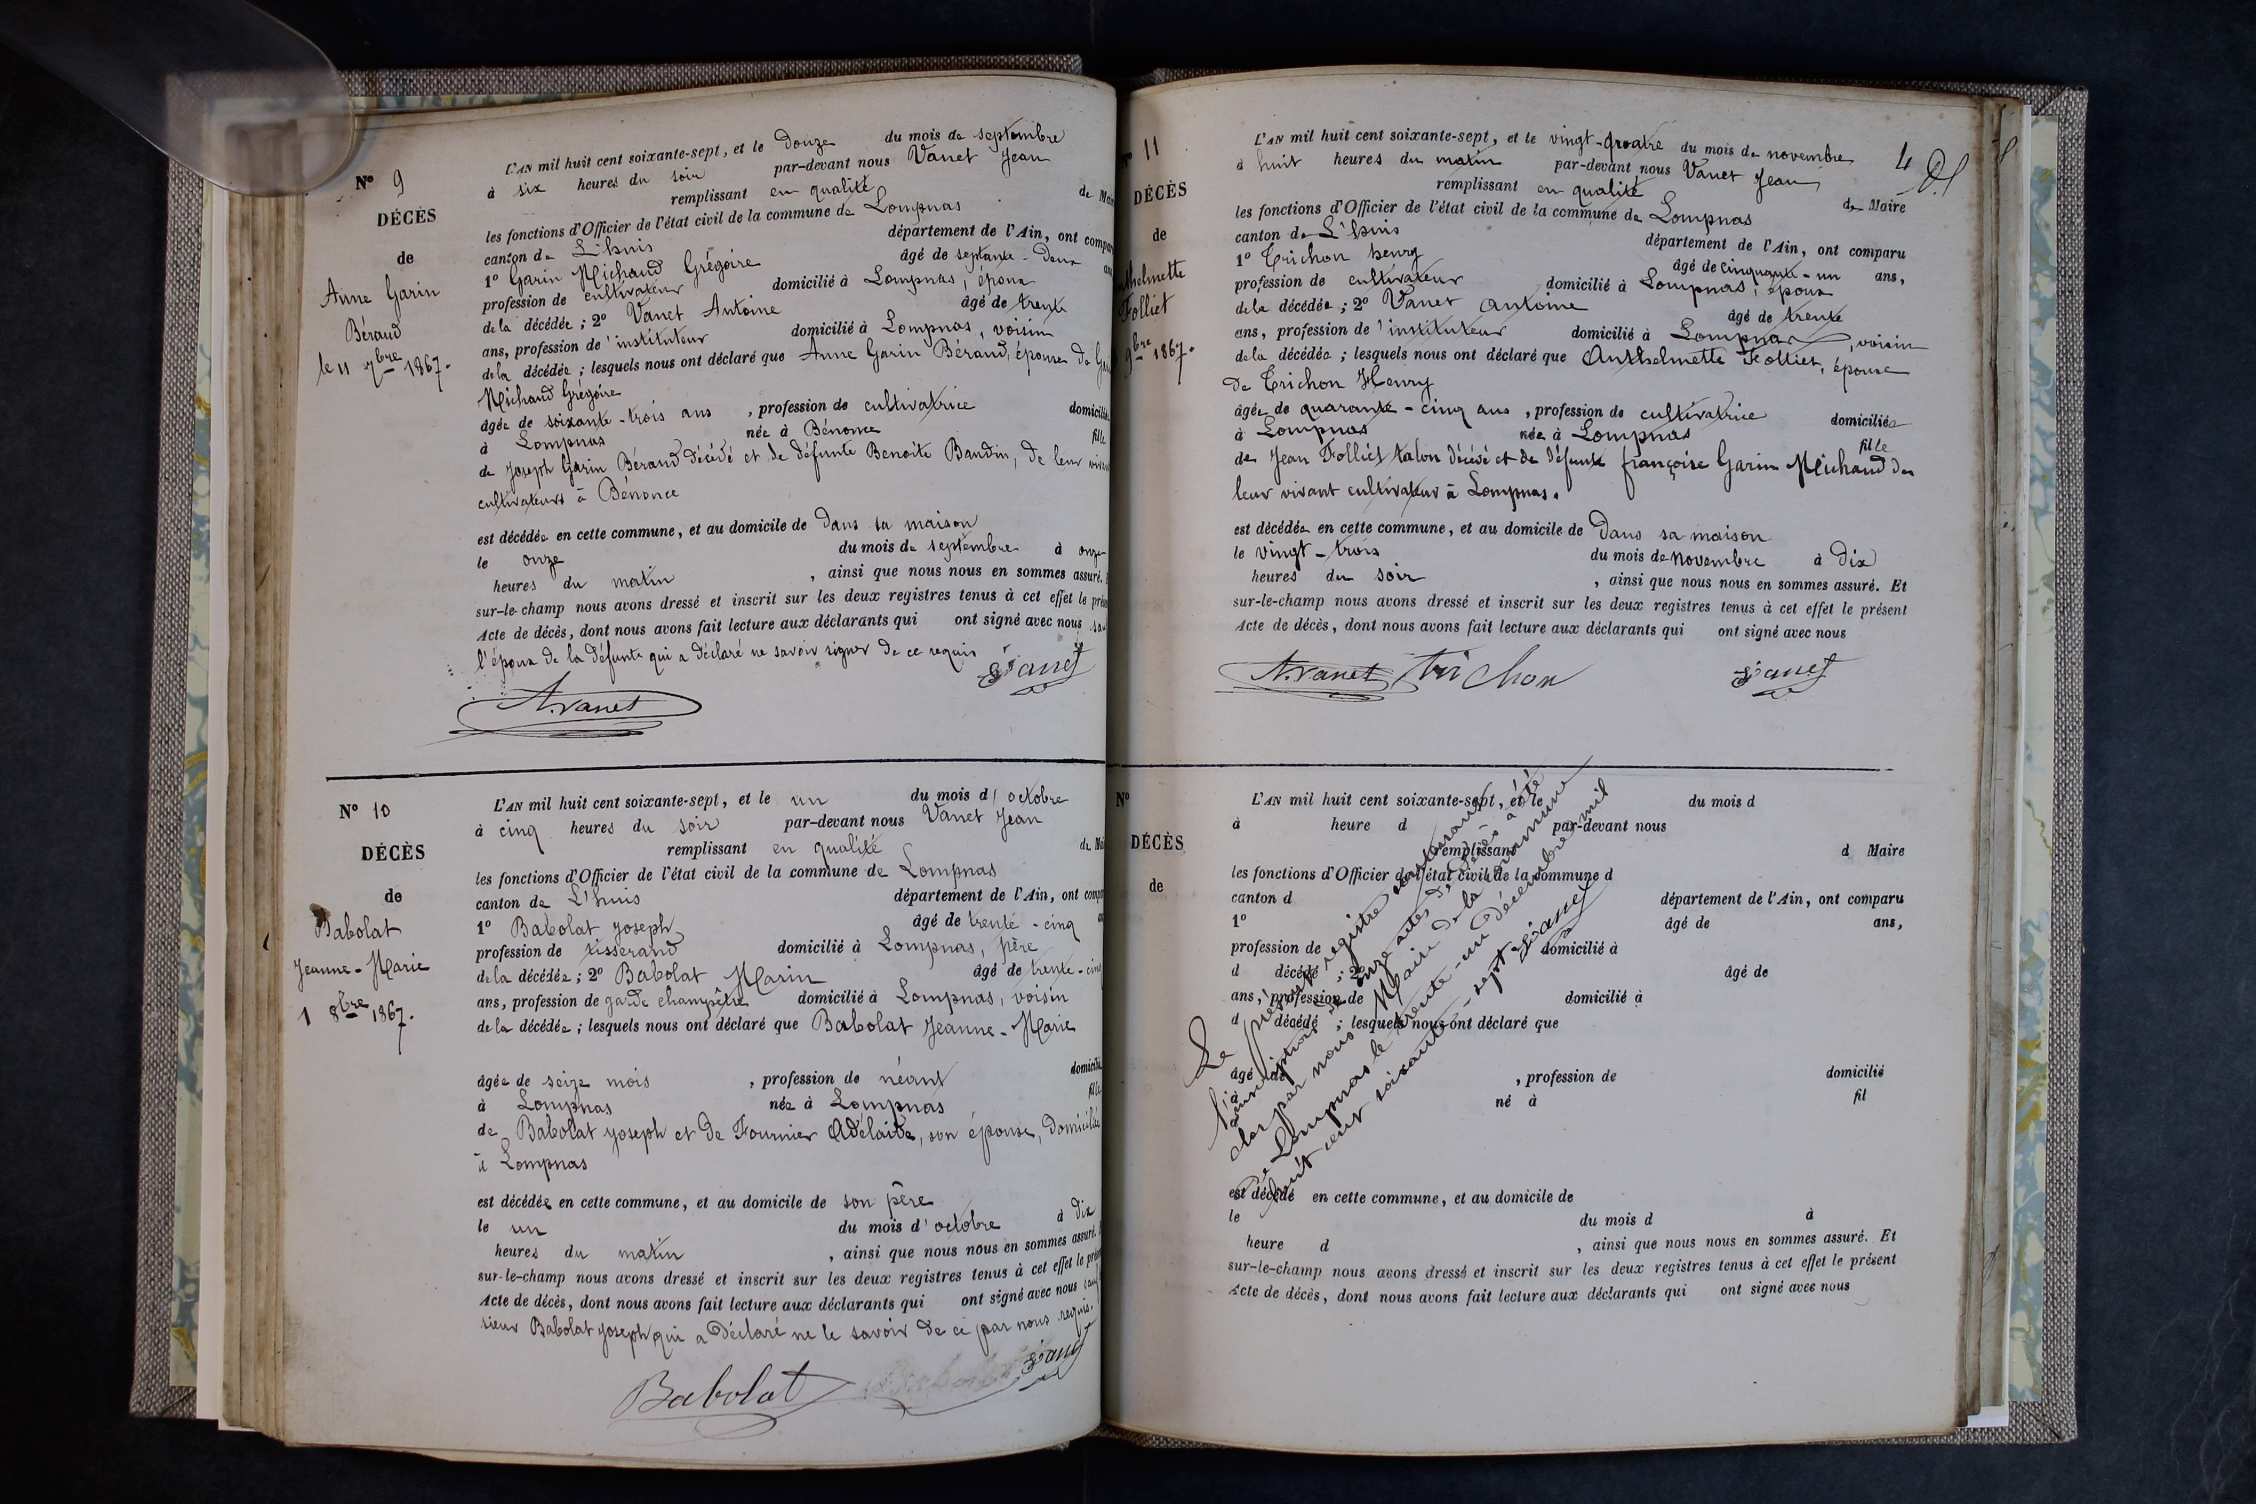 L'AN mil huit cent soixante-sept, et le Douze du mois de septembre
à six heures du soir par-devant nous Vanet Jean
remplissant en qualité de Mair
les fonctions d'Officier de l'état civil de la commune de Lompnas
canton de L'huis département de l'Ain, ont compar
1° Garin Michaud Grégoire âgé de septante-Deux ans
profession de cultivateur domicilié à Lompnas, époux
de la décédée ; 2° Vanet Antoine âgé de trente
ans, profession de instituteur domicilié à Lompnas, voisin
de la décédée ; lesquels nous ont déclaré que Anne Garin Béraud, épouse de Ga
Michaud Grégoire
âgée de soixante-trois ans, profession de cultivatrice domiciliée
à Lompnas née à Bénonce fille
de Joseph Garin Béraud décédé et de défunte Benoite Baudin, de leur vivan
cultivateurs à Bénonce
est décédée en cette commune, et au domicile de Dans sa maison
le onze du mois de septembre à onze
heures du matin, ainsi que nous nous en sommes assuré. E
sur-le-champ nous avons dressé et inscrit sur les deux registres tenus à cet effet le prése
Acte de décès, dont nous avons fait lecture aux déclarants qui ont signé avec nous sau
l'époux de la défunte qui a déclaré ne savoir signer de ce requis
Vanet
A. Vanet
N° 9
DÉCÈS
de
Anne Garin
Béraud
le 11 7bre 1867.
N° 10
DÉCÈS
de
Babolat
Jeanne-Marie
1 8bre 1867.
L'AN mil huit cent soixante-sept, et le un du mois d'octobre
à cinq heures du soir par-devant nous Vanet Jean
remplissant en qualité de Mai
les fonctions d'Officier de l'état civil de la commune de Lompnas
canton de L'huis département de l'Ain, ont compa
1° Babolat Joseph âgé de trente-cinq an
profession de tisserand domicilié à Lompnas, père
de la décédée ; 2° Babolat Marin âgé de trente-cinq
ans, profession de garde champêtre domicilié à Lompnas, voisin
de la décédée ; lesquels nous ont déclaré que Babolat Jeanne-Marie
âgée de seize mois, profession de néant domicilié
à Lompnas née à Lompnas fille
de Babolat Joseph et de Fournier Adélaïde, son épouse, domiciliés
à Lompnas
est décédée en cette commune, et au domicile de son père
le un du mois d'octobre à dix
heures du matin, ainsi que nous nous en sommes assuré.
sur-le-champ nous avons dressé et inscrit sur les deux registres tenus à cet effet le prése
Acte de décès, dont nous avons fait lecture aux déclarants qui ont signé avec nous sauf
sieur Babolat Joseph qui a déclaré ne le savoir de ce par nous requis.
Babolat Vanet
N° 11
DÉCÈS
de
nthelmette
Folliet
9bre 1867.
4
L'AN mil huit cent soixante-sept, et le vingt-quatre du mois de novembre
à huit heures du matin par-devant nous Vanet Jean
remplissant en qualité de Maire
les fonctions d'Officier de l'état civil de la commune de Lompnas
canton de L'huis département de l'Ain, ont comparu
1° Trichon henry âgé de cinquante-un ans,
profession de cultivateur domicilié à Lompnas, époux
de la décédée ; 2° Vanet Antoine âgé de trente
ans, profession de instituteur domicilié à Lompnas, voisin
de la décédée ; lesquels nous ont déclaré que Anthelmette Folliet, épouse
de Trichon Henry
âgée de quarante-cinq ans, profession de cultivatrice domiciliée
à Lompnas née à Lompnas fille
de Jean Folliet talon décédé et de défunte françoise Garin Michaud de
leur vivant cultivateur à Lompnas.
est décédée en cette commune, et au domicile de Dans sa maison
le vingt-trois du mois de novembre à Dix
heures du soir, ainsi que nous nous en sommes assuré. Et
sur-le-champ nous avons dressé et inscrit sur les deux registres tenus à cet effet le présent
Acte de décès, dont nous avons fait lecture aux déclarants qui ont signé avec nous
A. Vanet Trichon Vanet
N°
DÉCÈS
de
L'AN mil huit cent soixante-sept, et le du mois d
à heure d par-devant nous
remplissant d Maire
les fonctions d'Officier de l'état civil de la commune d
canton d département de l'Ain, ont comparu
1° âgé de ans,
profession de domicilié à
d décédé ; 2° âgé de
ans, profession de domicilié à
d décédé ; lesquels nous ont déclaré que
âgé de , profession de domicilié
à né à fil
est décédé en cette commune, et au domicile de
le du mois d à
heure d , ainsi que nous nous en sommes assuré. Et
sur-le-champ nous avons dressé et inscrit sur les deux registres tenus à cet effet le présent
Acte de décès, dont nous avons fait lecture aux déclarants qui ont signé avec nous
Le présent registre contenant
l'inscription de onze actes de décès a été
clos par nous Maire de la commune
de Lompnas le trente-un décembre mil
huit cent soixante-sept. Vanet